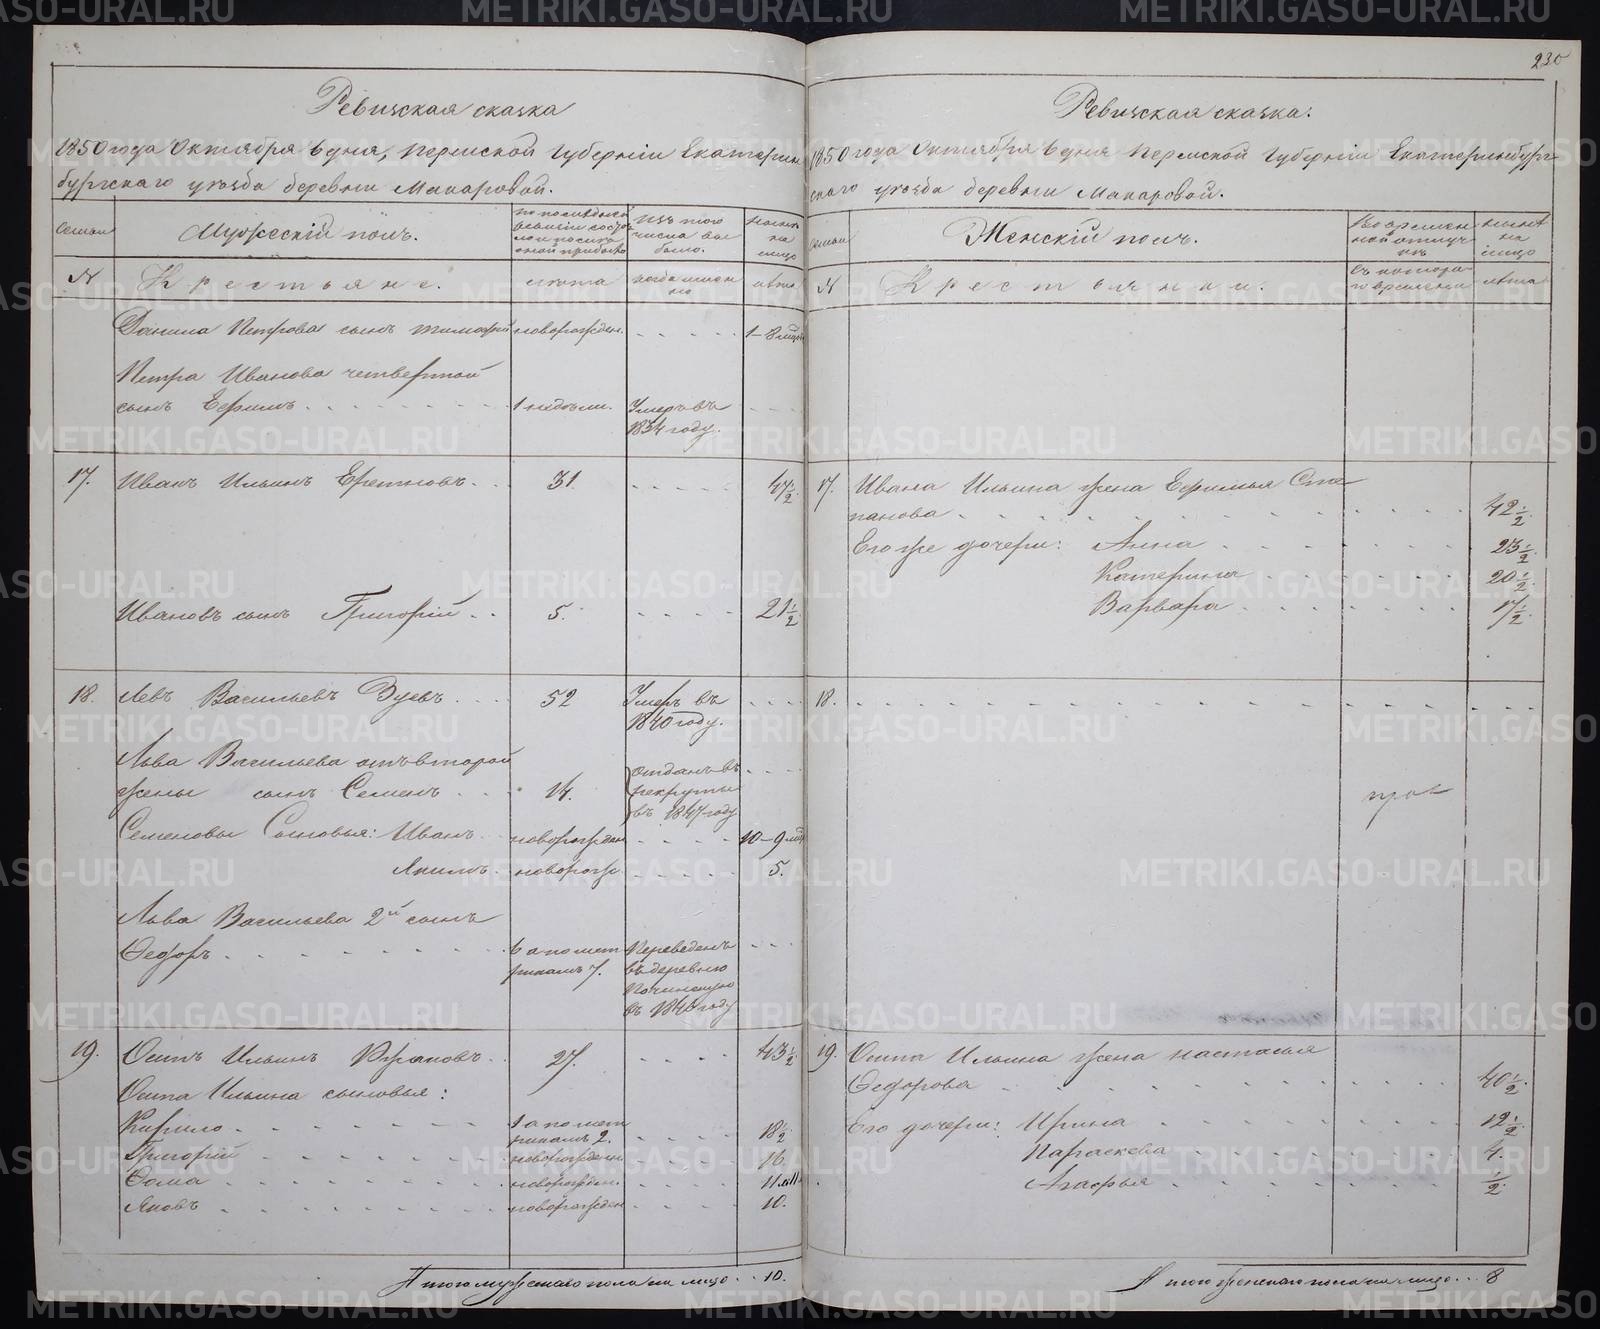 230
Ревизская сказка
1850 года Октября 6 дня, Пермской Губернiи Екатерин
бургскаго уѣзда деревни Макаровой.
Семьи
Мужескiй полъ.
по последней ревизiи состо
яло и после
оной прибыло
Изъ того
числа вы
было.
Ныне
на
лицо
N
Крестьяне.
лѣта
когда имен
но
лѣта
Данила Петрова сынъ Тимофей новорожден. 1 – 8 мѣс
Петра Иванова четвертой
сынъ Ефимъ 1 недѣли. Умеръ въ
1834 году.
17. Иванъ Ильинъ 31. 47 1/2
Ивановъ сынъ Григорiй 5. 21 1/2
18. Левъ Васильевъ Зуевъ 52 Умеръ въ
1840 году.
Льва Васильева отъ второй
жены сынъ Семенъ 14. отданъ въ
рекруты
въ 1847 году
Семеновы Сыновья: Иванъ новорожден 10 – 9 мѣс
Якимъ новорож. 5.
Льва Васильева 2й сынъ
Ѳедоръ 6 а по мет
рикамъ 7. Переведенъ
въ деревню
въ 1840 году
19. Осипъ Ильинъ 27. 43 1/2
Осипа Ильина сыновья:
Кирило 1 а по мет
рикамъ 2. 18 1/2
Григорiй новорожден 16
Ѳома новорожден. 11
Яковъ новорожден 10.
Итого мужескаго пола на лицо 10.
Ревизская сказка.
1850 года Октября 6 дня Пермской Губернiи Екатеринбург
скаго уѣзда деревни Макаровой.
Семьи
Женскiй полъ.
Во времен
ной отлуч
кѣ
Ныне
на
лицо
N
Крестьянки.
Съ котора
го времени
лѣта
17. Ивана Ильина жена Ефимья Сте
панова 42 1/2
Его же дочери: Анна 23 1/2
Катерина 20 1/2
Варвара 17 1/2
18.
19. Осипа Ильина жена Настасья
Ѳедорова 40 1/2
Его дочери: Ирина 12 1/2
Параскева 4.
Агафья 1/2
Итого женскаго пола на лицо 8
METRIKI.GASO-URAL.RU